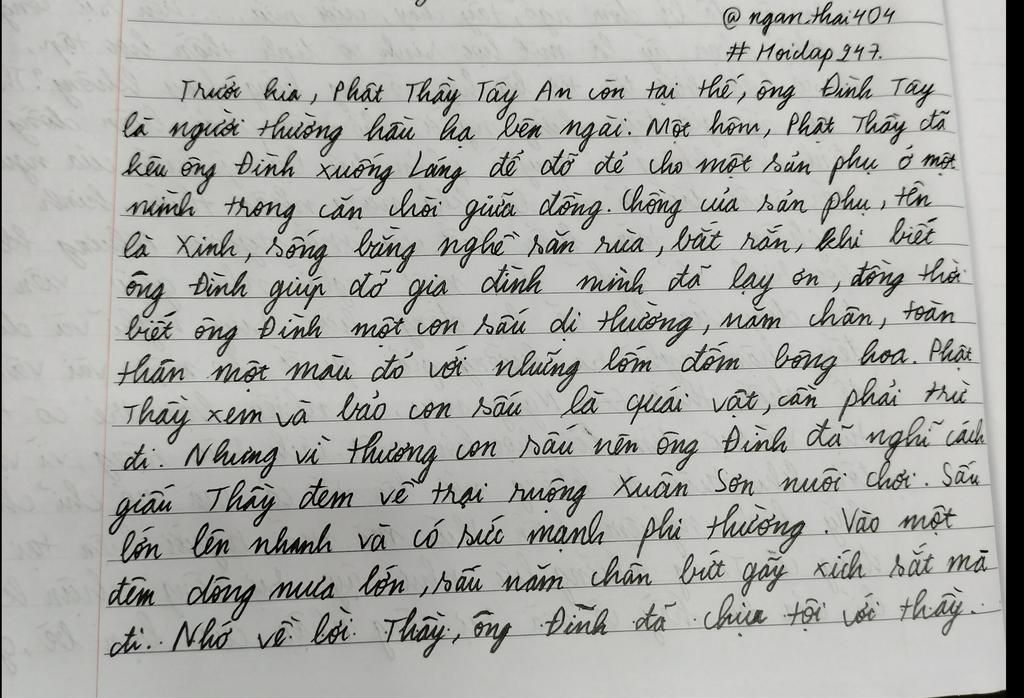 @ ngan.thai404
# Hoidap247.
Trước kia, Phật Thầy Tây An còn tại thế, ông Đình Tây
là người thường hầu hạ bên ngài. Một hôm, Phật Thầy đã
kêu ông Đình xuống Láng để đỡ đẻ cho một sản phụ ở một
mình trong căn chòi giữa đồng. Chồng của sản phụ, tên
là Xinh, sống bằng nghề săn rùa, bắt rắn, khi biết
ông Đình giúp đỡ gia đình mình đã lạy ơn, đồng thời
biết ông Đình một con sấu dị thường, năm chân, toàn
thân một màu đỏ với những lốm đốm bông hoa. Phật
Thầy xem và bảo con sấu là quái vật, cần phải trừ
đi. Nhưng vì thương con sấu nên ông Đình đã nghĩ cách
giấu Thầy đem về trại ruộng Xuân Sơn nuôi chơi. Sấu
lớn lên nhanh và có sức mạnh phi thường. Vào một
đêm dông mưa lớn, sấu năm chân bứt gãy xích sắt mà
đi. Nhớ về lời Thầy, ông Đình đã chịu tội với thầy.